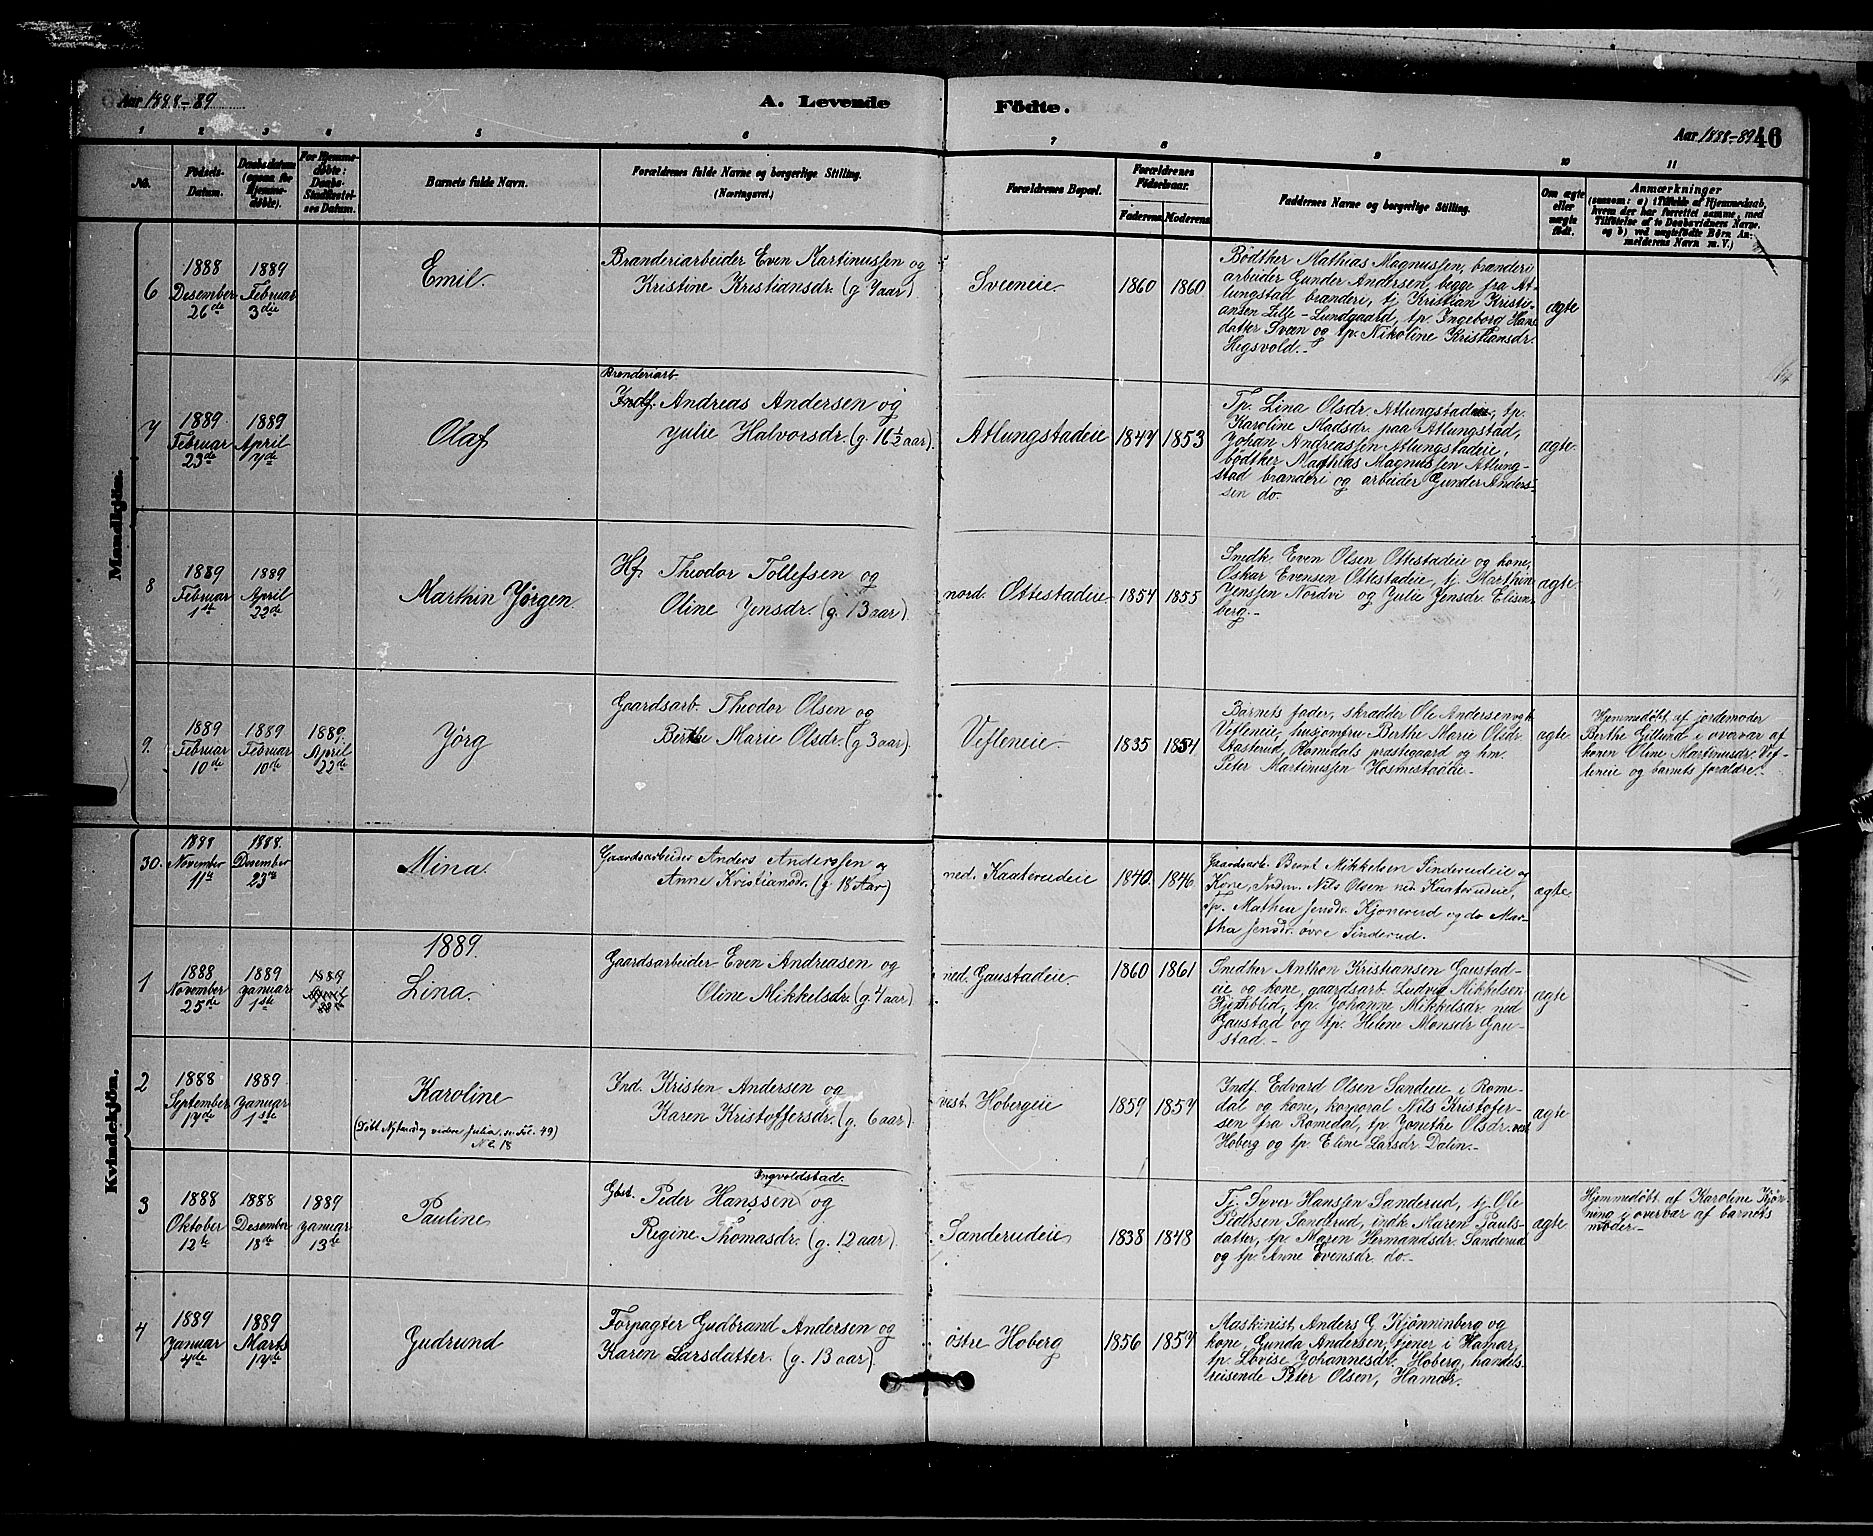 Aar 1888-89
A. Levende Födte.
Aar 1888-89
46
1 2 3 4 5 6 7 8 9 10 11
No.
Födsels-
Datum.
Daabsdatum
(ogsaa for
Hjemme-
döbte).
For Hjemme-
döbte:
Daabs-
Stadfæstel-
ses Datum.
Barnets fulde Navn.
Forældrenes fulde Navne og borgerlige Stilling.
(Næringsvei.)
Forældrenes Bopæl.
Forældrenes
Födselsaar.
Faderens. Moderens.
Faddernes Navne og borgerlige Stilling.
Om ægte
eller
uægte
födt.
Anmærkninger
(saasom: a) i Tilfælde af Hjemmedaab,
hvem der har forrettet samme, med
Tilföielse af to Daabsvidners Navne,
og b) ved uægtefödte Börn An-
melderens Navn m. V.)
Mandkjön.
6
1888
Desember
26de
1889
Februar
3die
Emil.
Branderiarbeider Even Martinussen og
Kristine Kristiansdr. (g. 4 aar).
Sveeneie
1860 1860
Bödtker Mathias Magnussen, brænderi
arbeider Gunder Andersen, begge fra At-
lungstad brænderi, tj. Kristian Kristi-
ansen Lille-Lundgaard, tp. Ingeborg Hans
datter Sveen og tp. Nikoline Kristiansdr.
Hegsvold.-
ægte
7
1889
Februar
23de
1889
April
7de
Olaf
Brenderiarb.
Indf. Andreas Andersen og
Julie Halvorsdr. (g. 16½ aar).
Atlungstadeie
1847 1853
Tp. Lina Olsdr. Atlungstadeie, tp.
Karoline Madsdr. paa Atlungstad,
Johan Andreassen Atlungstadeie,
bödtker Mathias Magnussen Atlung-
stad brænderi og arbeider Gunder Anders-
sen do.
ægte.
8
1889
Februar
1st
1889
April
22de
Marthin Jørgen.
Hf. Theodor Tollefsen og
Oline Jensdr. (g. 13 aar).
nord. Ottestadeie
1854 1855
Snedk. Even Olsen Ottestadeie og kone,
Oskar Evensen Ottestadeie, tj. Marthin
Jenssen Nordvi og Julie Jensdr. Elisen-
berg.-
ægte
9.
1889
Februar
10de
1889
Februar
10de
1889.
April
22de
Jørg
Gaardsarb. Theodor Olsen og
Berthe Marie Olsdr. (g. 3 aar).
Vefleneie.
1835 1854
Barnets fader, skrædder Ole Andersen ogk.
Vefleneie, husjomfru Berthe Marie Olsdr.
Staterud, Romedals præstegaard og hm.
Peter Martinussen Hosmestadeie.-
ægte
Hjemmedøbt af jordemoder
Berthe Gillund i overvær af
konen Oline Martinusdr. Vef-
leneie og barnets forældre.-
Kvindekjön.
30.
1888
November
11te
1888.
Desember
23de
Mina.
Gaardsarbeider Anders Anderssen og
Anne Kristiansdr. (g. 18 Aar)
ned. Kaaterudeie
1840. 1846
Gaardsarb. Bernt Mikkelsen Sinderudeie og
Kone, Inder. Nils Olsen ned. Kaaterudeie,
Tp. Mathea Jensdr. Kjonerud og do Mar-
tha Jensdr. övre Sinderud.
ægte.
1889.
1
1888
November
25de
1889
Januar
1ste
1889
April
Lina.
Gaardsarbeider Even Andreasen og
Oline Mikkelsdr. (g. 4 aar)
ned. Gaustadeie
1860 1861
Snedker Anthon Kristiansen Gaustad-
eie og kone, gaardsarb. Ludvig Mikkelsen
Kjerneblid, tp. Johanne Mikkelsdr. ned
Gaustad og tp. Helene Monsdr. Gau-
stad.-
ægte
2
1888
September
17de
1889.
Januar
1ste
Karoline
No 18
Ind. Kristen Andersen og
Karen Kristoffersdr. (g. 6 aar)
vest. Hobergeie
1859 1857
Indf. Edvard Olsen Sandeie i Rome-
dal og kone, korporal Nils Kristofer-
sen fra Romedal, tp. Jorunthe Olsdr. vest
Hoberg og tp. Eline Larsdr. Dalen.-
ægte
3
1888
Oktober
12te
1888
Desember
18de
1889
Januar
13de
Pauline
Ingvoldstad.
Gbst. Peder Hanssen og
Regine Thomasdr. (g. 12 aar)
Sanderudeie
1838 1848
Tj. Syver Hanssen Sanderud, tj. Ole
Pedersen Sanderud, indk. Maren Pauls-
datter, tp. Maren Hermandsdr. Sanderud
og tp. Anne Evensdr. do.-
ægte
Hjemmedøbt af Karoline Kjøn-
ning i overvær af barnets
moder.-
4
1889
Januar
4de
1889
Marts
17de
Gudrund
Forpagter Gudbrand Andersen og
Karen Larsdatter. (g. 13 aar)
østre Hoberg
1856 1857
Maskinist Anders G. Kjønninberg og
kone, Gunda Andersen, tjener i Hamar,
tp. Lovise Johannesdr. Hoberg, handels-
reisende Peter Olsen, Hamar.